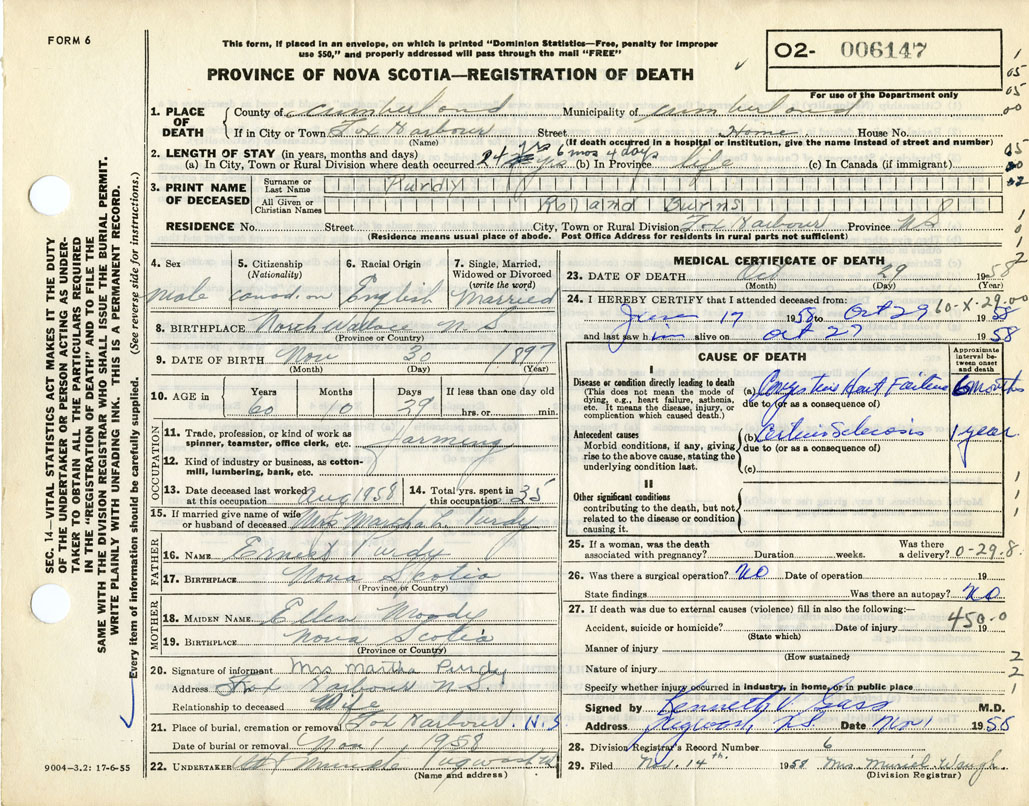 FORM 6
This form, if placed in an envelope, on which is printed "Dominion Statistics—Free, penalty for improper
use $50," and properly addressed will pass through the mail "FREE"
O2- 006147
For use of the Department only
PROVINCE OF NOVA SCOTIA—REGISTRATION OF DEATH
1. PLACE OF DEATH County of Cumberland Municipality of Cumberland
If in City or Town Fox Harbour Street Home House No.
(Name) (If death occurred in a hospital or institution, give the name instead of street and number)
2. LENGTH OF STAY (in years, months and days)
(a) In City, Town or Rural Division where death occurred 24 yrs 6 mos 4 days (b) In Province life (c) In Canada (if immigrant)
3. PRINT NAME OF DECEASED Surname or Last Name Purdy
All Given or Christian Names Rolland Burns
RESIDENCE No. Street City, Town or Rural Division Fox Harbour Province N.S.
(Residence means usual place of abode. Post Office Address for residents in rural parts not sufficient)
4. Sex 5. Citizenship (Nationality) 6. Racial Origin 7. Single, Married, Widowed or Divorced (write the word)
Male Canadian English Married
8. BIRTHPLACE North Wallace N.S.
(Province or Country)
9. DATE OF BIRTH Nov 30 1897
(Month) (Day) (Year)
10. AGE in Years Months Days If less than one day old
60 10 29 hrs. or min.
OCCUPATION
11. Trade, profession, or kind of work as spinner, teamster, office clerk, etc. farming
12. Kind of industry or business, as cotton-mill, lumbering, bank, etc.
13. Date deceased last worked at this occupation Aug 1958 14. Total yrs. spent in this occupation 35
15. If married give name of wife or husband of deceased Mrs Martha L. Purdy
FATHER
16. NAME Ernest Purdy
17. BIRTHPLACE Nova Scotia
(Province or Country)
MOTHER
18. MAIDEN NAME Ellen Moody
19. BIRTHPLACE Nova Scotia
(Province or Country)
20. Signature of informant Mrs Martha Purdy
Address Fox Harbour N.S.
Relationship to deceased Wife
21. Place of burial, cremation or removal Fox Harbour N.S.
Date of burial or removal Nov 1 1958
22. UNDERTAKER Pugwash
(Name and address)
9004-3.2: 17-6-55
MEDICAL CERTIFICATE OF DEATH
23. DATE OF DEATH Oct 29 1958
(Month) (Day) (Year)
24. I HEREBY CERTIFY that I attended deceased from:
June 17 1958 to Oct 29 1958
60-X-29.00
and last saw him alive on Oct 27 1958
CAUSE OF DEATH
Approximate interval between onset and death
I
Disease or condition directly leading to death (a) Congestive Heart Failure 6 months
(This does not mean the mode of dying, e.g., heart failure, asthenia, etc. It means the disease, injury, or complication which caused death.)
due to (or as a consequence of)
Antecedent causes (b) 1 year
Morbid conditions, if any, giving rise to the above cause, stating the underlying condition last.
due to (or as a consequence of)
(c)
II
Other significant conditions
contributing to the death, but not related to the disease or condition causing it.
25. If a woman, was the death associated with pregnancy? Duration weeks. Was there a delivery? 0-29.8
26. Was there a surgical operation? NO Date of operation 19
State findings Was there an autopsy? NO
27. If death was due to external causes (violence) fill in also the following:—
450.0
Accident, suicide or homicide? Date of injury 19
(State which)
Manner of injury
(How sustained)
Nature of injury
Specify whether injury occurred in industry, in home, or in public place
Signed by Kenneth V. Gass M.D.
Address Pugwash, N.S. Date Nov 1 1958
28. Division Registrar's Record Number 6
29. Filed Nov. 14th 1958 Mrs. Muriel Waugh
(Division Registrar)
SEC. 14—VITAL STATISTICS ACT MAKES IT THE DUTY
OF THE UNDERTAKER OR PERSON ACTING AS UNDER-
TAKER TO OBTAIN ALL THE PARTICULARS REQUIRED
IN THE "REGISTRATION OF DEATH" AND TO FILE THE
SAME WITH THE DIVISION REGISTRAR WHO SHALL ISSUE THE BURIAL PERMIT.
WRITE PLAINLY WITH UNFADING INK. THIS IS A PERMANENT RECORD.
Every item of information should be carefully supplied. (See reverse side for instructions.)